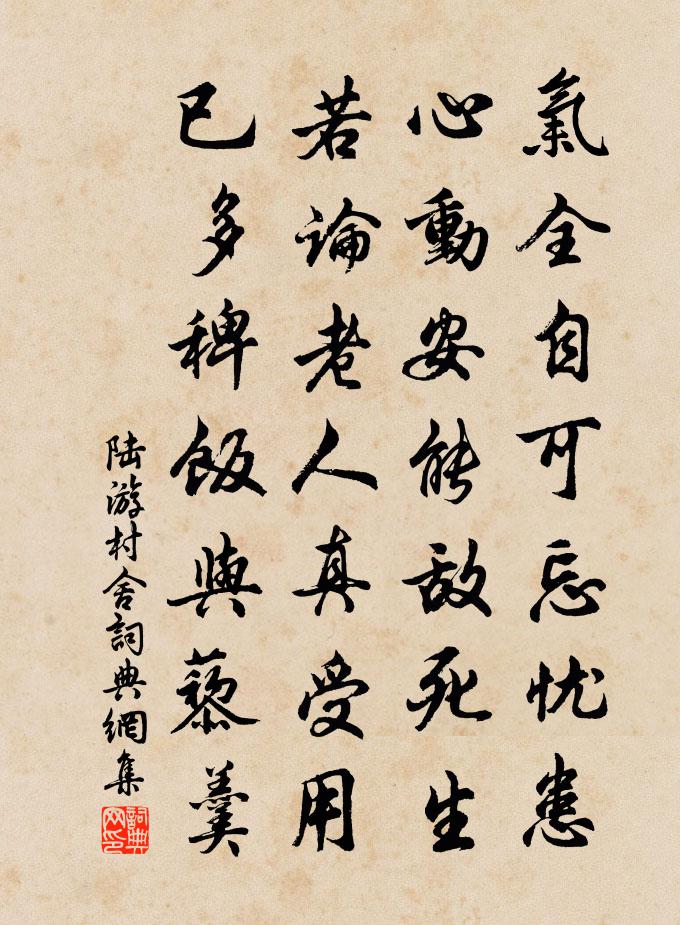 氣全自可忘忧患
心動安能敌死生
若論老人真受用
已多稗飯與藜羹
陆游村舍詞典網集
詞典网印